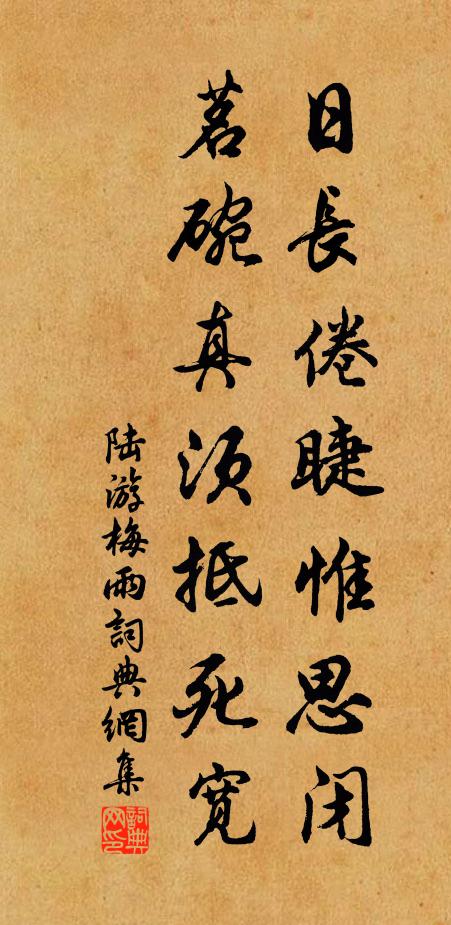 日長倦睫惟思閉
茗碗真須抵死寬
陆游梅雨詞典網集
詞典网印